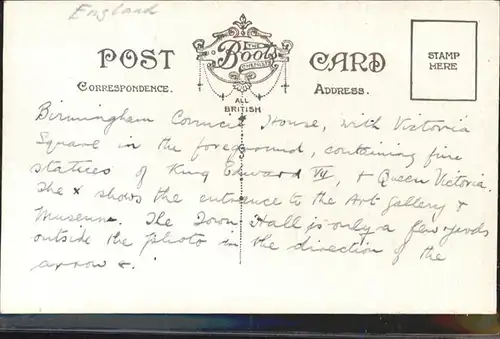 England
POST CARD
THE
Boots
CHEMISTS
ALL
BRITISH
CORRESPONDENCE.
ADDRESS.
STAMP
HERE
Birmingham Council House, with Victoria
Square in the foreground, containing fine
statues of King Edward VII, & Queen Victoria.
The x shows the entrance to the Art Gallery &
Museum. The Town Hall is only a few yards
outside the photo in the direction of the
arrow